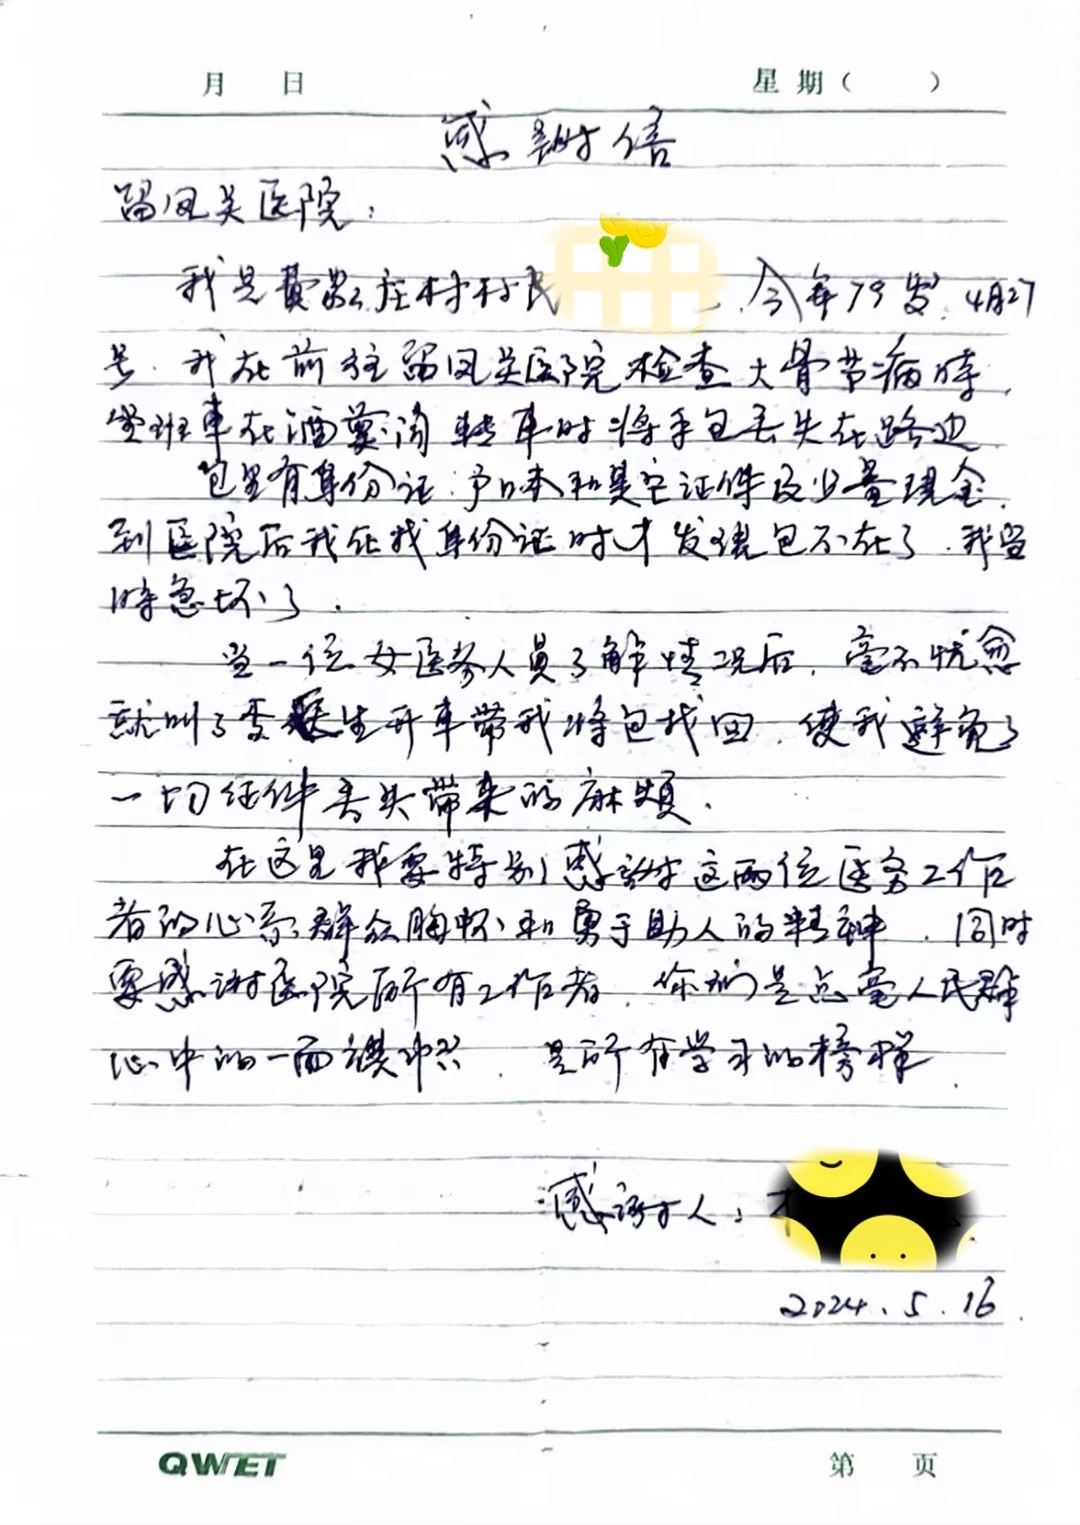 月 日 星期( )
感谢信
留凤关医院:
我是费家庄村村民 今年79岁.4月27
号.我在前往留凤关医院检查大骨节病时,
坐班车在酒奠沟转车时将手包丢失在路边
包里有身份证.户口本和其它证件及少量现金.
到医院后我在找身份证时才发现包不在了.我当
时急坏了.
当一位女医务人员了解情况后.毫不忧愈
就叫了李医生开车带我将包找回.使我避免了
一切证件丢失带来的麻烦.
在这里我要特别感谢这两位医务工作
者的心系群众胸怀和勇于助人的精神.同时
要感谢医院所有工作者.你们是 人民群
心中的一面旗帜.是所有学习的榜样.
感谢人:
2024.5.16.
QWET 第 页